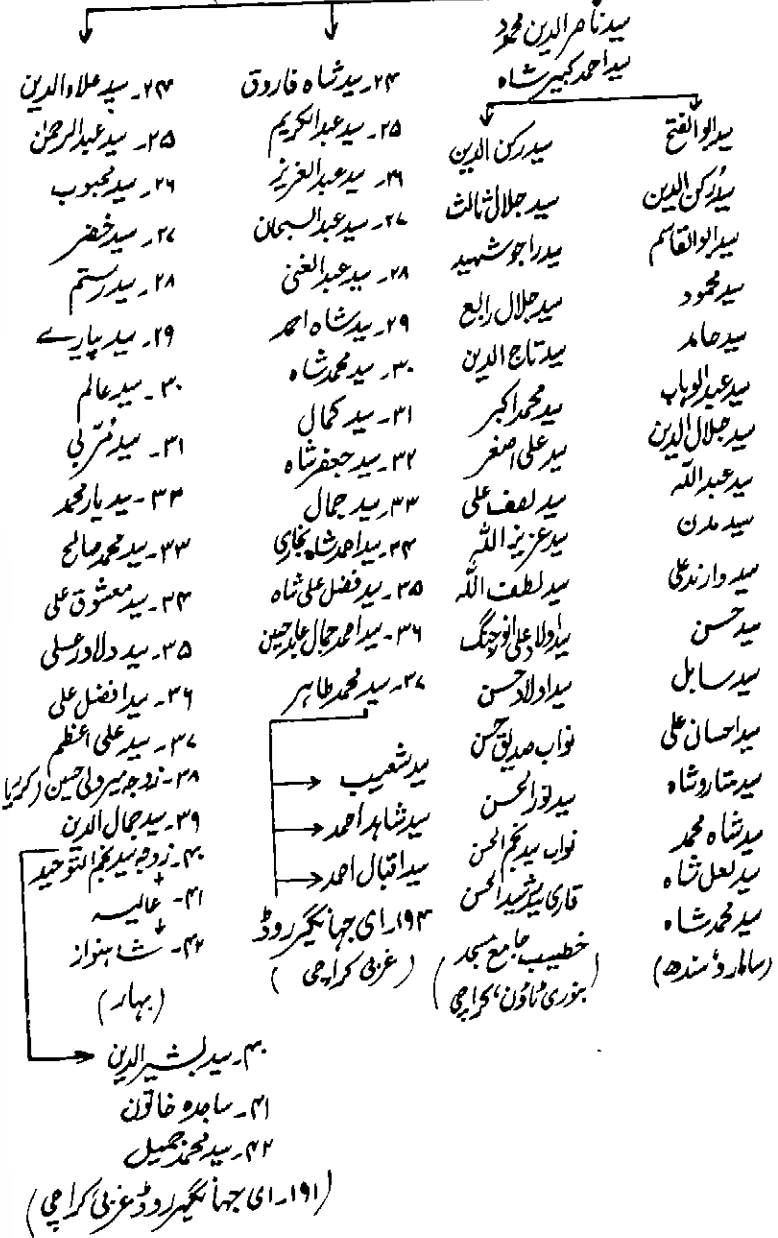 سید ناصر الدین محمود
سید احمد کبیر شاہ
سید ابوالفتح
سید رکن الدین
سید ابوالقاسم
سید محمود
سید حامد
سید عبدالوہاب
سید جلال الدین
سید عبداللہ
سید مدن
سید وارند علی
سید حسن
سید سابل
سید احسان علی
سید متارو شاہ
سید شاہ محمد
سید لعل شاہ
سید محمد شاہ
(سالارو، سندھ)
سید رکن الدین
سید جلال ثالث
سید راجو شہید
سید جلال رابع
سید تاج الدین
سید محمد اکبر
سید علی اصغر
سید لطف علی
سید عزیز اللہ
سید لطف اللہ
سید اولاد علی انور جنگ
سید اولاد حسن
نواب صدیق حسن
سید نور الحسن
نواب سید نجم الحسن
قاری سید رشید الحسن
خطیب جامع مسجد
(بنوری ٹاؤن، کراچی)
۲۴۔ سید شاہ فاروق
۲۵۔ سید عبدالکریم
۲۶۔ سید عبدالعزیز
۲۷۔ سید عبدالسبحان
۲۸۔ سید عبدالغنی
۲۹۔ سید شاہ احمد
۳۰۔ سید محمد شاہ
۳۱۔ سید کمال
۳۲۔ سید جعفر شاہ
۳۳۔ سید جمال
۳۴۔ سید احمد شاہ بخاری
۳۵۔ سید فضل علی شاہ
۳۶۔ سید احمد جمال عابد حسین
۳۷۔ سید محمد طاہر
سید شعیب
سید شاہد احمد
سید اقبال احمد
۱۹۴۔ ای جہانگیر روڈ
(غربی کراچی)
۲۴۔ سید علاء الدین
۲۵۔ سید عبدالرحمٰن
۲۶۔ سید محبوب
۲۷۔ سید خضر
۲۸۔ سید رستم
۲۹۔ سید پیارے
۳۰۔ سید عالم
۳۱۔ سید مُرّبی
۳۳۔ سید یار محمد
۳۳۔ سید محمد صالح
۳۴۔ سید معشوق علی
۳۵۔ سید دلاور علی
۳۶۔ سید افضل علی
۳۷۔ سید علی اعظم
۳۸۔ زوجہ میر ولی حسین (کرپا
۳۹۔ سید جمال الدین
۴۰۔ زوجہ سید نجم التوحید
۴۱۔ عالیہ
۴۲۔ شاہنواز
(بہار)
۴۰۔ سید بشیر الدین
۴۱۔ ساجدہ خاتون
۴۲۔ سید محمد جمیل
(۱۹۱۔ ای جہانگیر روڈ غربی کراچی)